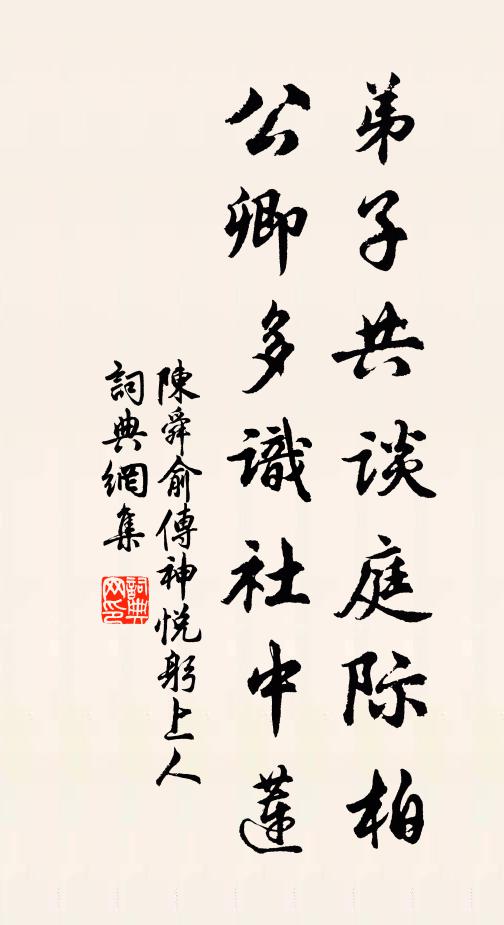 弟子共谈庭际柏
公卿多識社中蓮
陳舜俞傳神悅躬上人
詞典網集
詞典網印